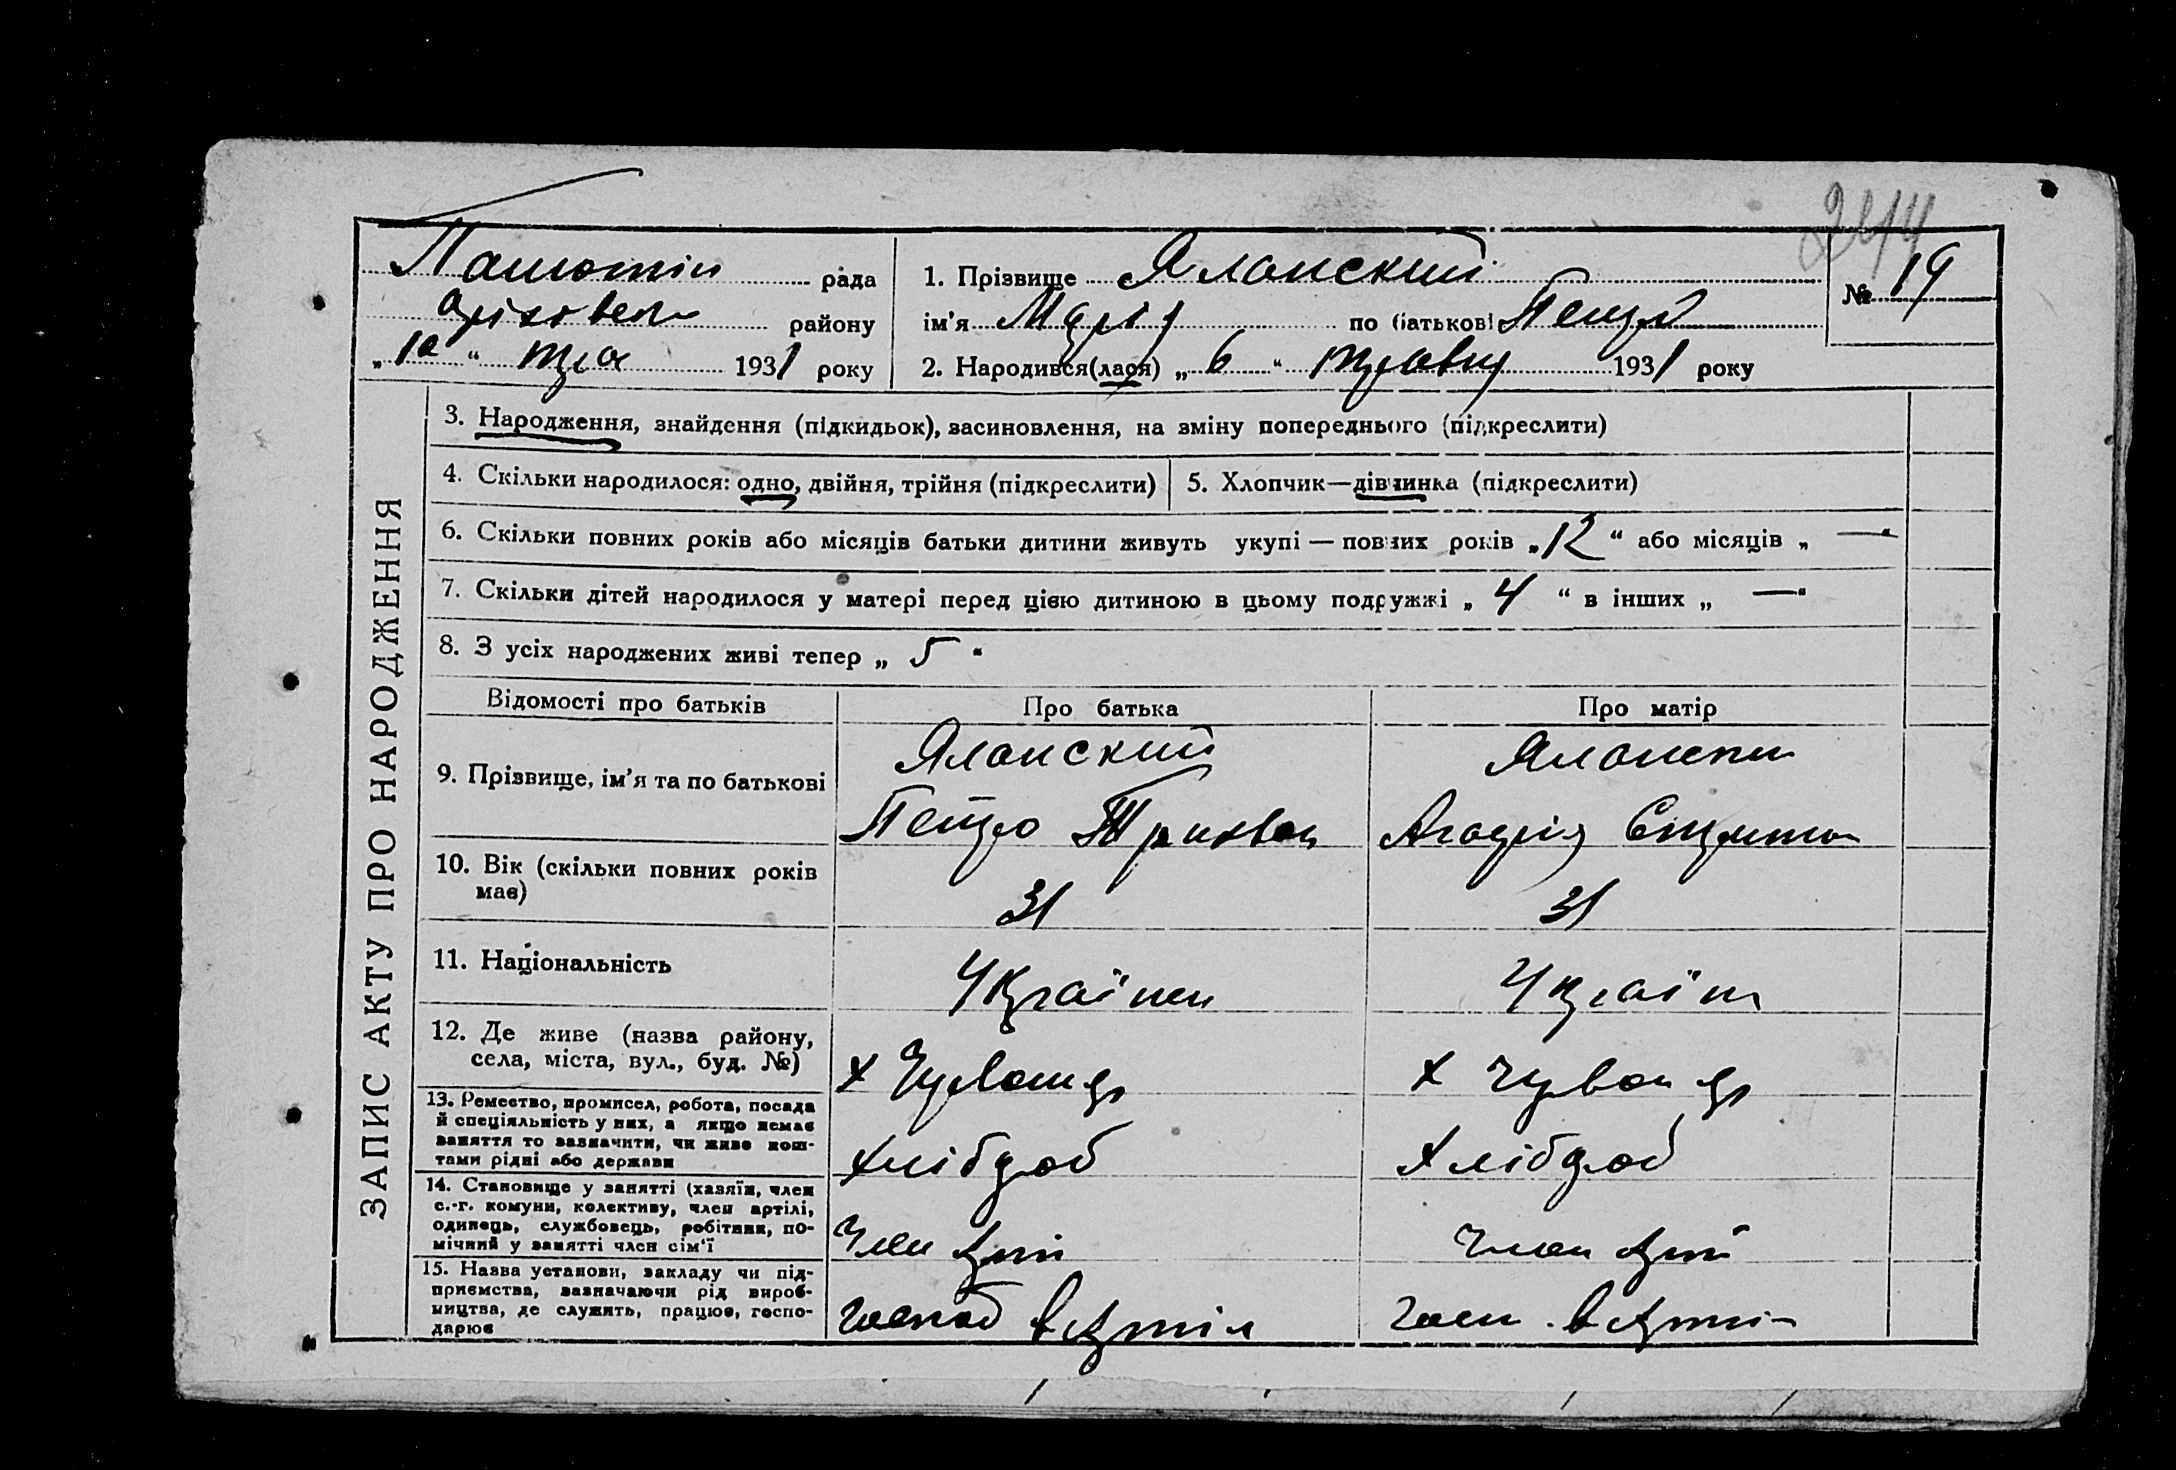 2414
рада
Оріхівськ району
„ 10 “ тра 1931 року
1. Прізвище Яланский
ім'я Марія по батькові Петро
2. Народився(лася) „ 6 “ травня 1931 року
№ 19
ЗАПИС АКТУ ПРО НАРОДЖЕННЯ
3. Народження, знайдення (підкидьок), засиновлення, на зміну попереднього (підкреслити)
4. Скільки народилося: одно, двійня, трійня (підкреслити)
5. Хлопчик—дівчинка (підкреслити)
6. Скільки повних років або місяців батьки дитини живуть укупі — повних років „ 12 “ або місяців „ — “
7. Скільки дітей народилося у матері перед цією дитиною в цьому подружжі „ 4 “ в інших „ — “
8. З усіх народжених живі тепер „ 5 “
Відомості про батьків
Про батька
Про матір
9. Прізвище, ім'я та по батькові
Яланский
Петро
10. Вік (скільки повних років
має)
31
31
11. Національність
Україн
Україн
12. Де живе (назва району,
села, міста, вул., буд. №)
х
х
13. Ремество, промисел, робота, посада
й спеціяльність у них, а якщо немає
заняття то зазначити, чи живе кош-
тами рідні або держави
Хлібороб
Хлібороб
14. Становище у занятті (хазяїн, член
с.-г. комуни, колективу, член артілі,
одинець, службовець, робітник, по-
мічний у занятті член сім'ї
Член арті
Член арті
15. Назва установи, закладу чи під-
приємства, зазначаючи рід вироб-
ництва, де служить, працює, госпо-
дарює
господ в Артіл
госп. в Арті